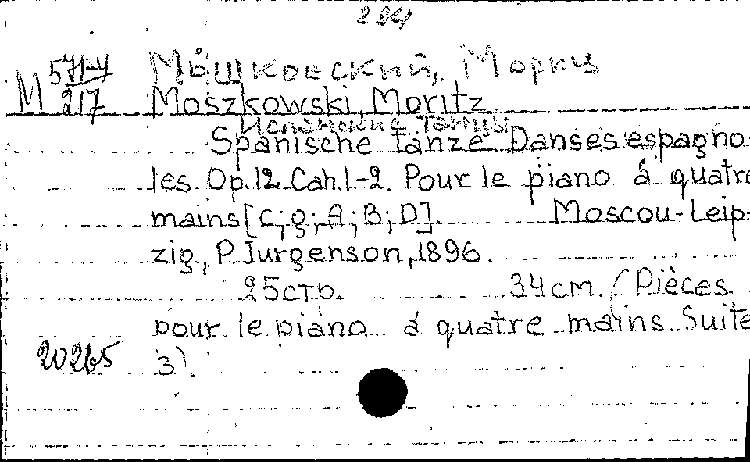 M 571-4 Мошковский, Мориц
217 Moszkowski Moritz
Испанские танцы
Spanische Tänze Danses espagno-
les. Op.12. Cah.1-2. Pour le piano à quatre
mains [C; g; A; B; D]. Moscou-Leip-
zig, P. Jurgenson, 1896.
25стр. 34см. (Pièces
pour le piano à quatre mains. Suite
20265 3).